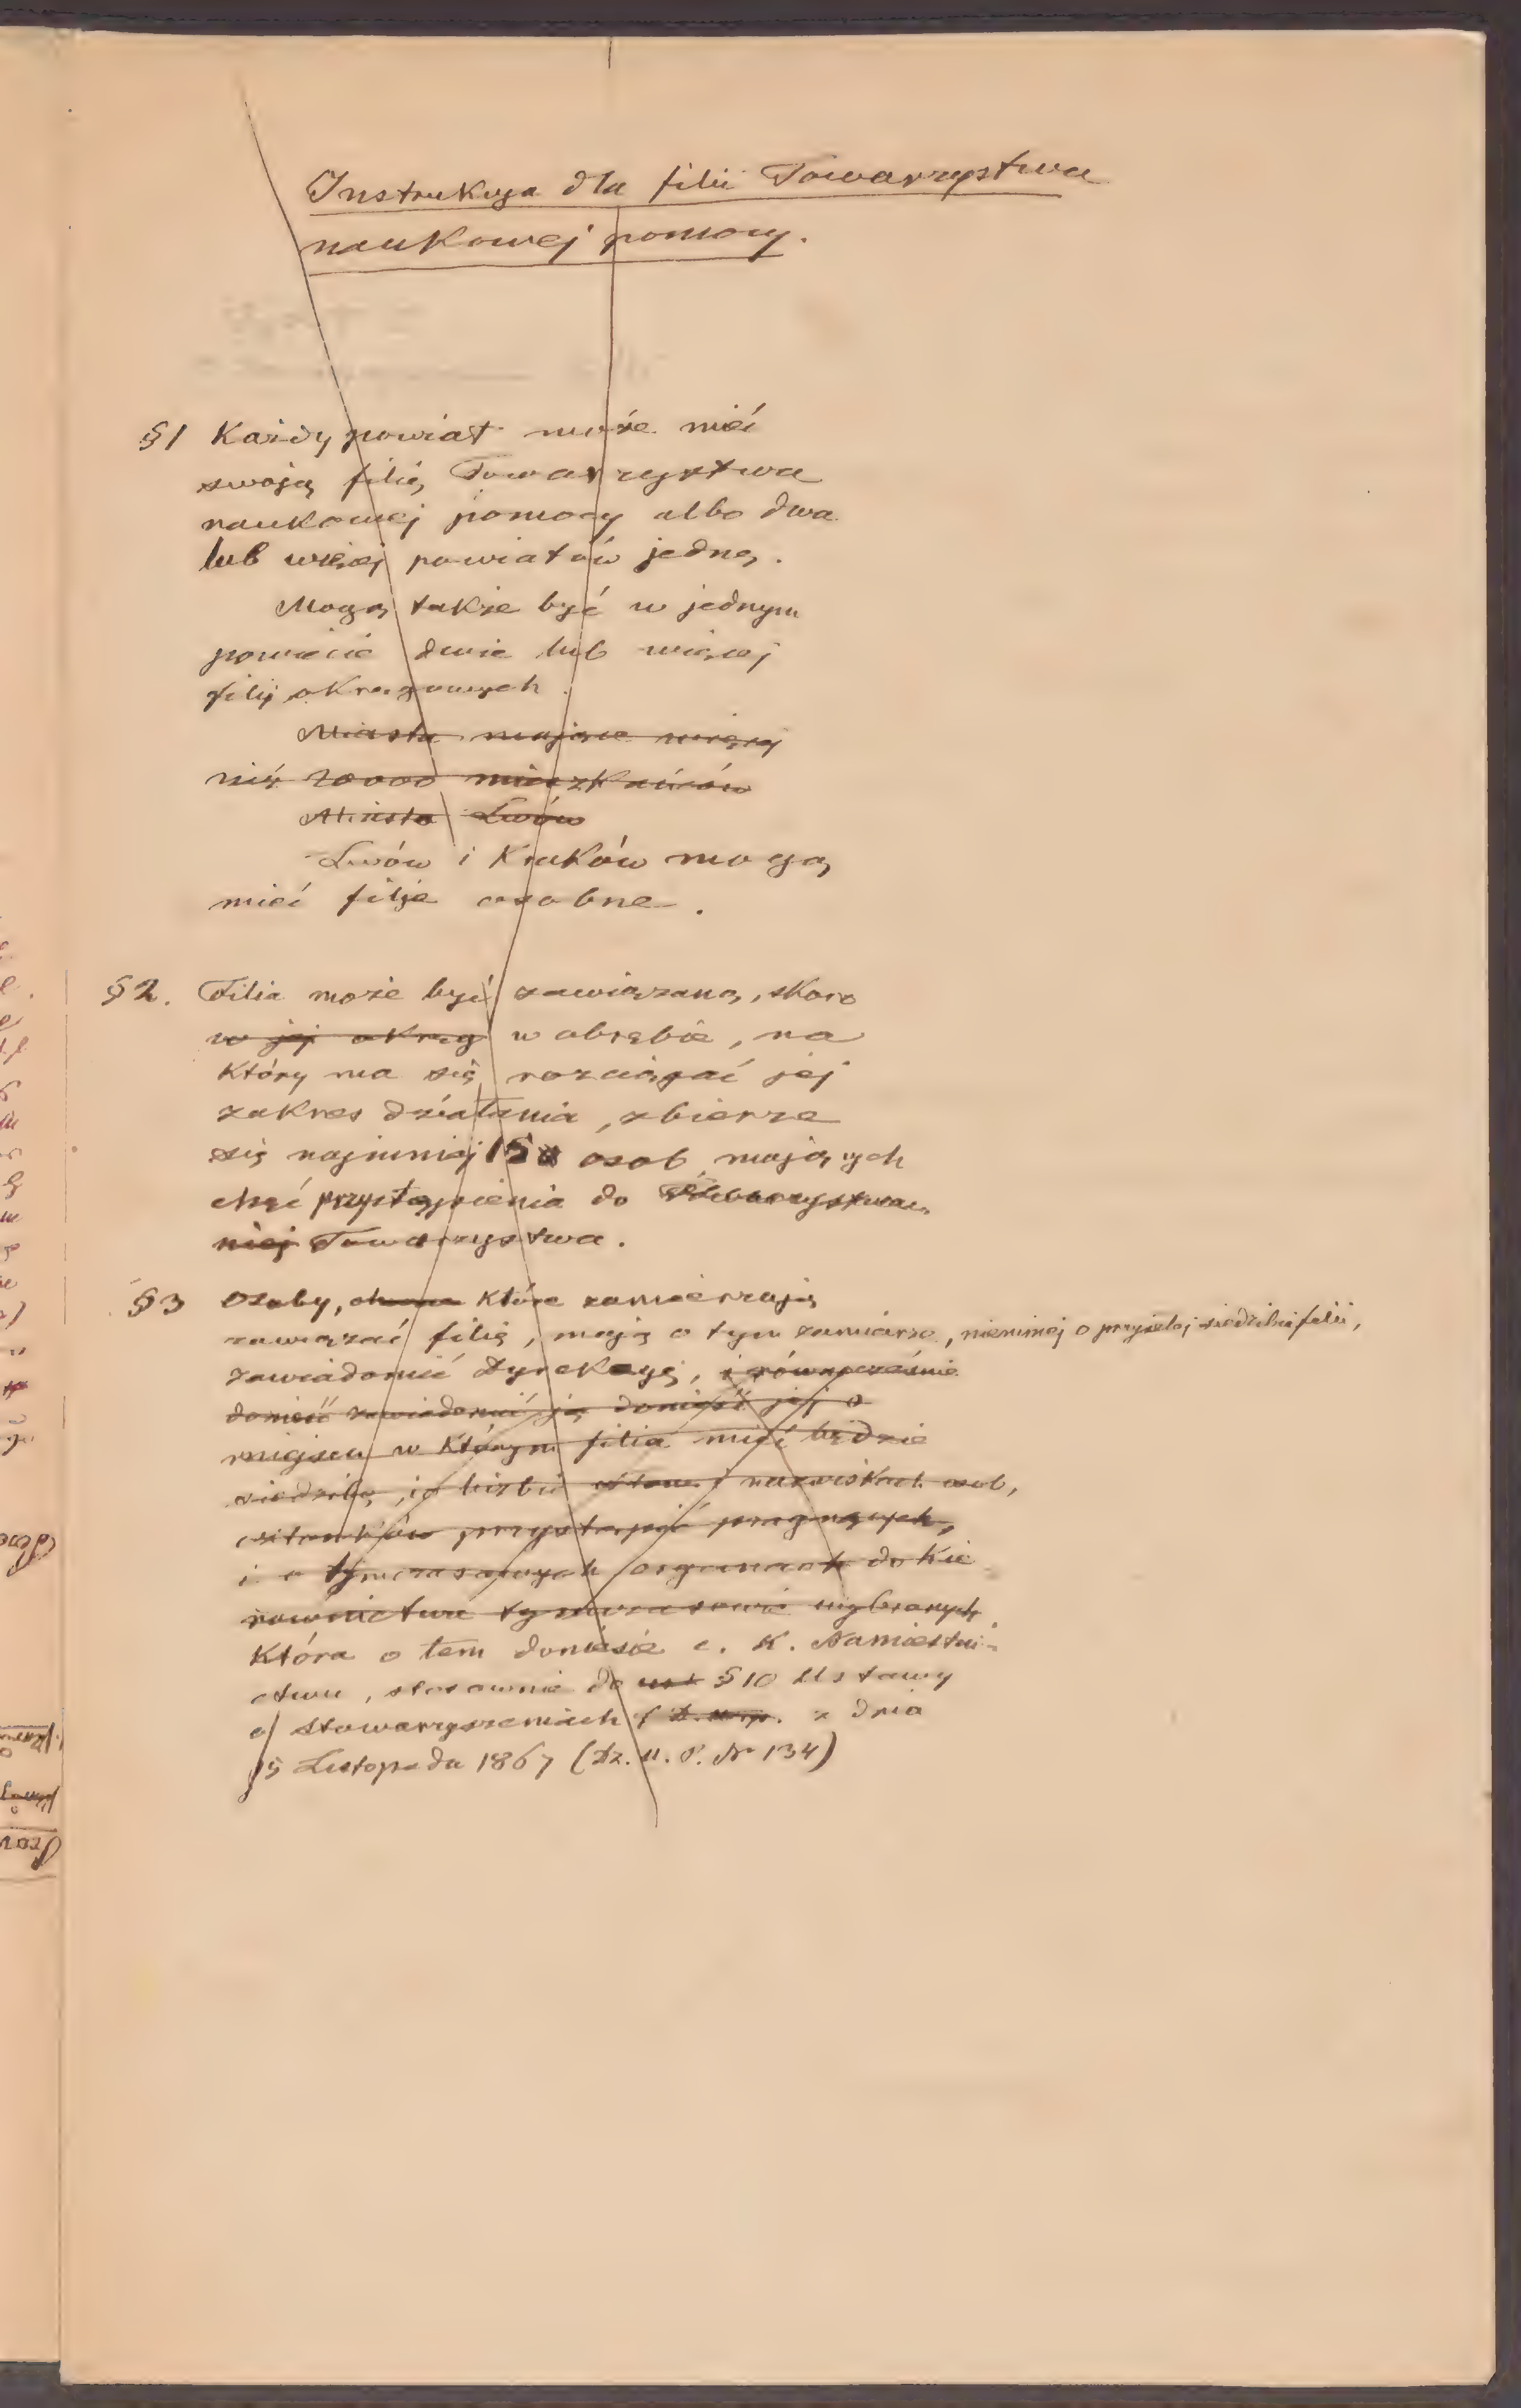 Instrukcya dla filii Towarzystwa
naukowej pomocy.
§1 Każdy powiat może mieć
swoją filię Towarzystwa
naukowej pomocy albo dwa
lub więcej powiatów jedną.
Mogą także być w jednym
powiecie dwie lub więcej
filij okręgowych.
Miasta mające więcej
niż 20000 mieszkańców
Miasta Lwów
Lwów i Kraków mogą
mieć filje osobne.
§2. Filia może być zawiązaną, skoro
w jej okręg w obrębie, na
który ma się rozciągać jej
zakres działania, zbierze
się najmniej 15 osob mających
chęć przystąpienia do Towarzystwa
niej Towarzystwa.
§3 Osoby, które zamierzają
zawiązać filię, mają o tym zamiarze, niemniej o przyszłej siedzibie filii,
zawiadomić Dyrekcyę, i równocześnie
donieść zawiadomić ją donieść jej o
miejscu w którym filia mieć będzie
siedzibę, i o liczbie i nazwiskach osob,
członków przystąpić pragnących,
i o tymczasowych organach do kie
rownictwa tymczasowie wybranych
która o tem doniesie c. k. Namiestni-
ctwu, stosownie do ust §10 Ustawy
o stowarzyszeniach z dnia
15 Listopada 1867 (Dz. U. P. Nr 134)